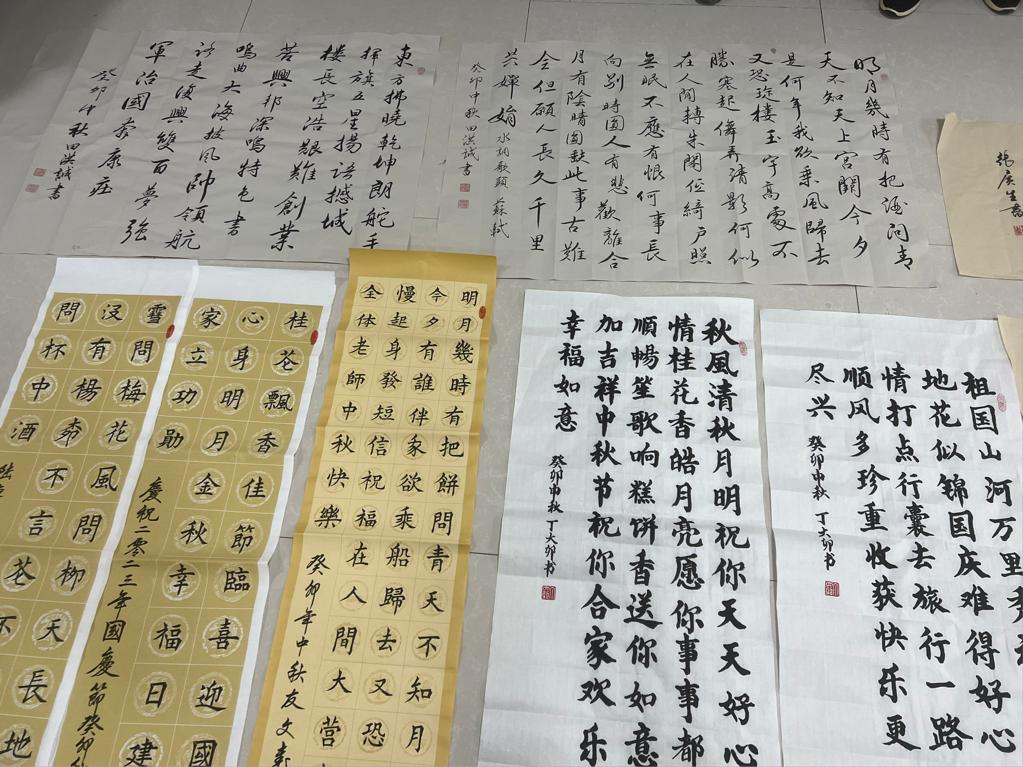 東方拂曉乾坤朗舵手
揮旗五星揚語撼城
樓長空浩艱難創業
苦興邦深鳴特色書
鳴曲大海披風帥領航
走復興雙百夢強
軍治國奔康莊
癸卯中秋田洪誠書
明月幾時有把酒问青
天不知天上宮闕今夕
是何年我欲乘風歸去
又恐瓊樓玉宇高處不
勝寒起舞弄清影何似
在人间轉朱閣低綺户照
無眠不應有恨何事長
向别時圆人有悲歡離合
月有陰晴圆缺此事古難
全但願人長久千里
共嬋娟 水调歌頭 蘇軾
癸卯中秋田洪誠書
張廣生書
雪問梅花風問柳天長
沒有楊柰不言花不地
問杯中酒
桂花飄香佳節臨喜迎國
心身明月金秋幸福日建
家立功勛
慶祝二零二三年國慶節癸卯
明月幾時有把餅問青天不知月
今夕有誰伴家欲乘船歸去又恐
慢起身發短信祝福在人間大營
全体老師中秋快樂
癸卯年中秋友文書
秋風清秋月明祝你天天好心
情桂花香皓月亮愿你事事都
順暢笙歌响糕饼香送你如意
加吉祥中秋节祝你合家欢乐
幸福如意
癸卯中秋丁大卯书
祖国山河万里
地花似锦国庆难得好心
情打点行囊去旅行一路
顺风多珍重收获快乐更
尽兴
癸卯中秋丁大卯书